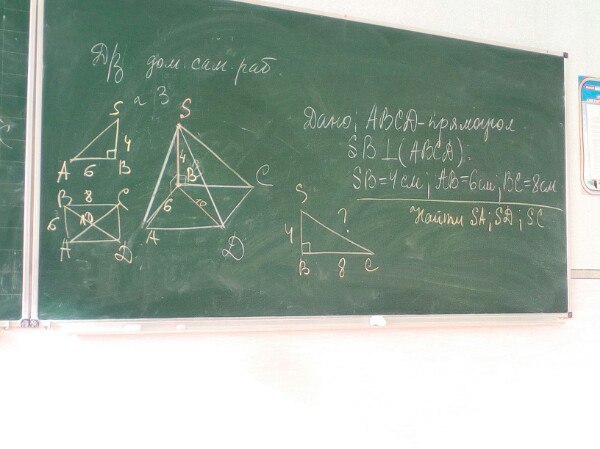 Д/з дом. сам. раб.
3
Дано: ABCD-прямоугол
SB⊥(ABCD).
SB=4см; AB=6см; BC=8см
Найти SA; SD; SC
S
4
A 6 B
B 8 C
6 10
A D
S
4
B
6 10
C
A D
S
?
4
B 8 C